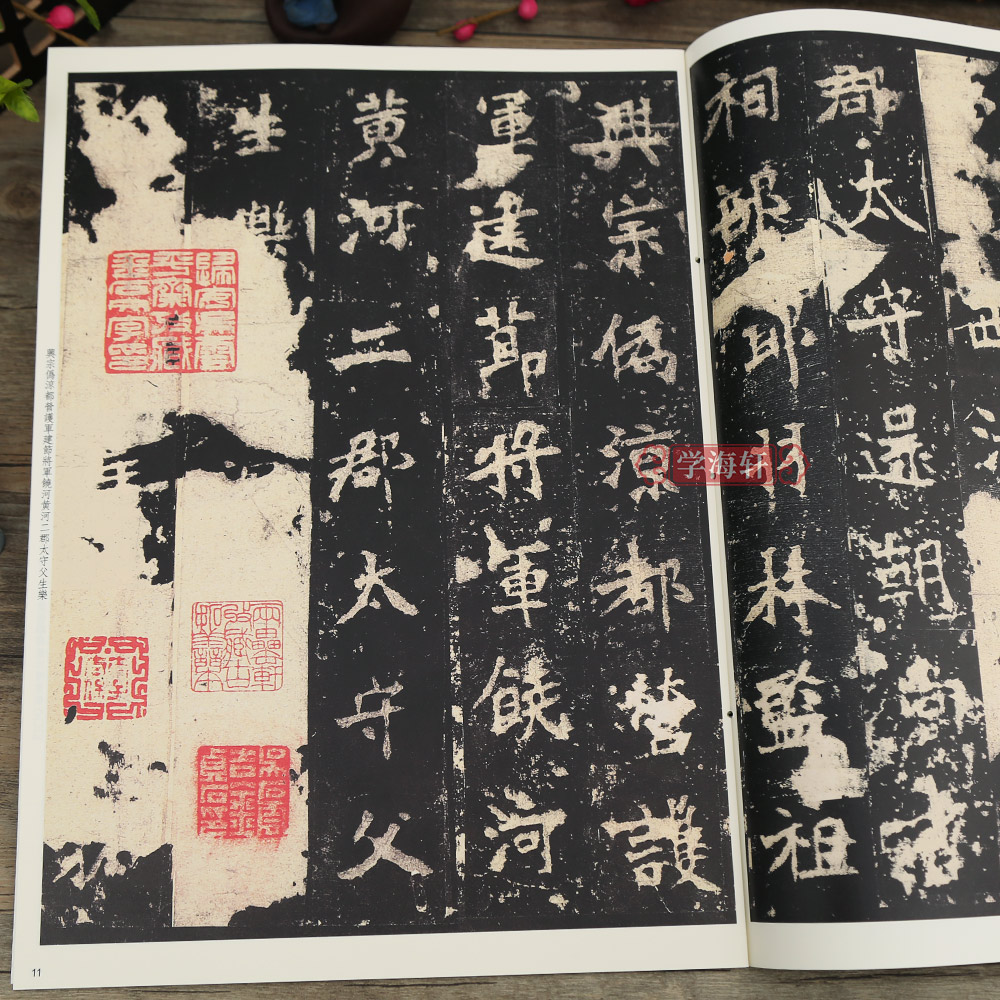 西
郡太守還朝尚書
祠部郎羽林監祖
興宗偽涼都督護
軍建節將軍饒河
黃河二郡太守父
生樂
興宗偽涼都督護軍建節將軍饒河黃河二郡太守父生樂
11
学海轩